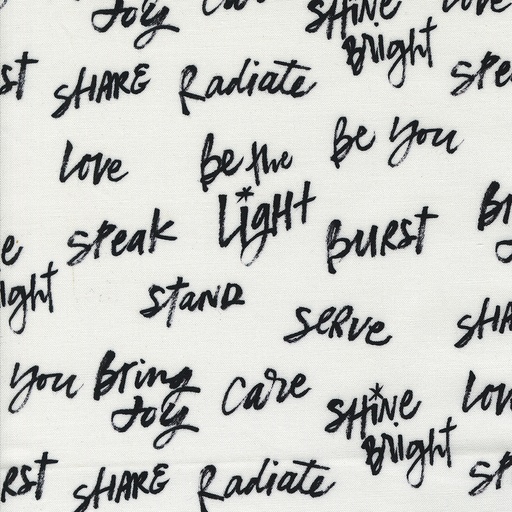 Joy Care SHINE Love
Bright
ST SHARE Radiate Spe
Love Be the Be You
LIGHT
e Speak BURST Br
ight STAND Serve SHA
You Bring Care SHINE Lov
Joy Bright
RST SHARE Radiate Sp